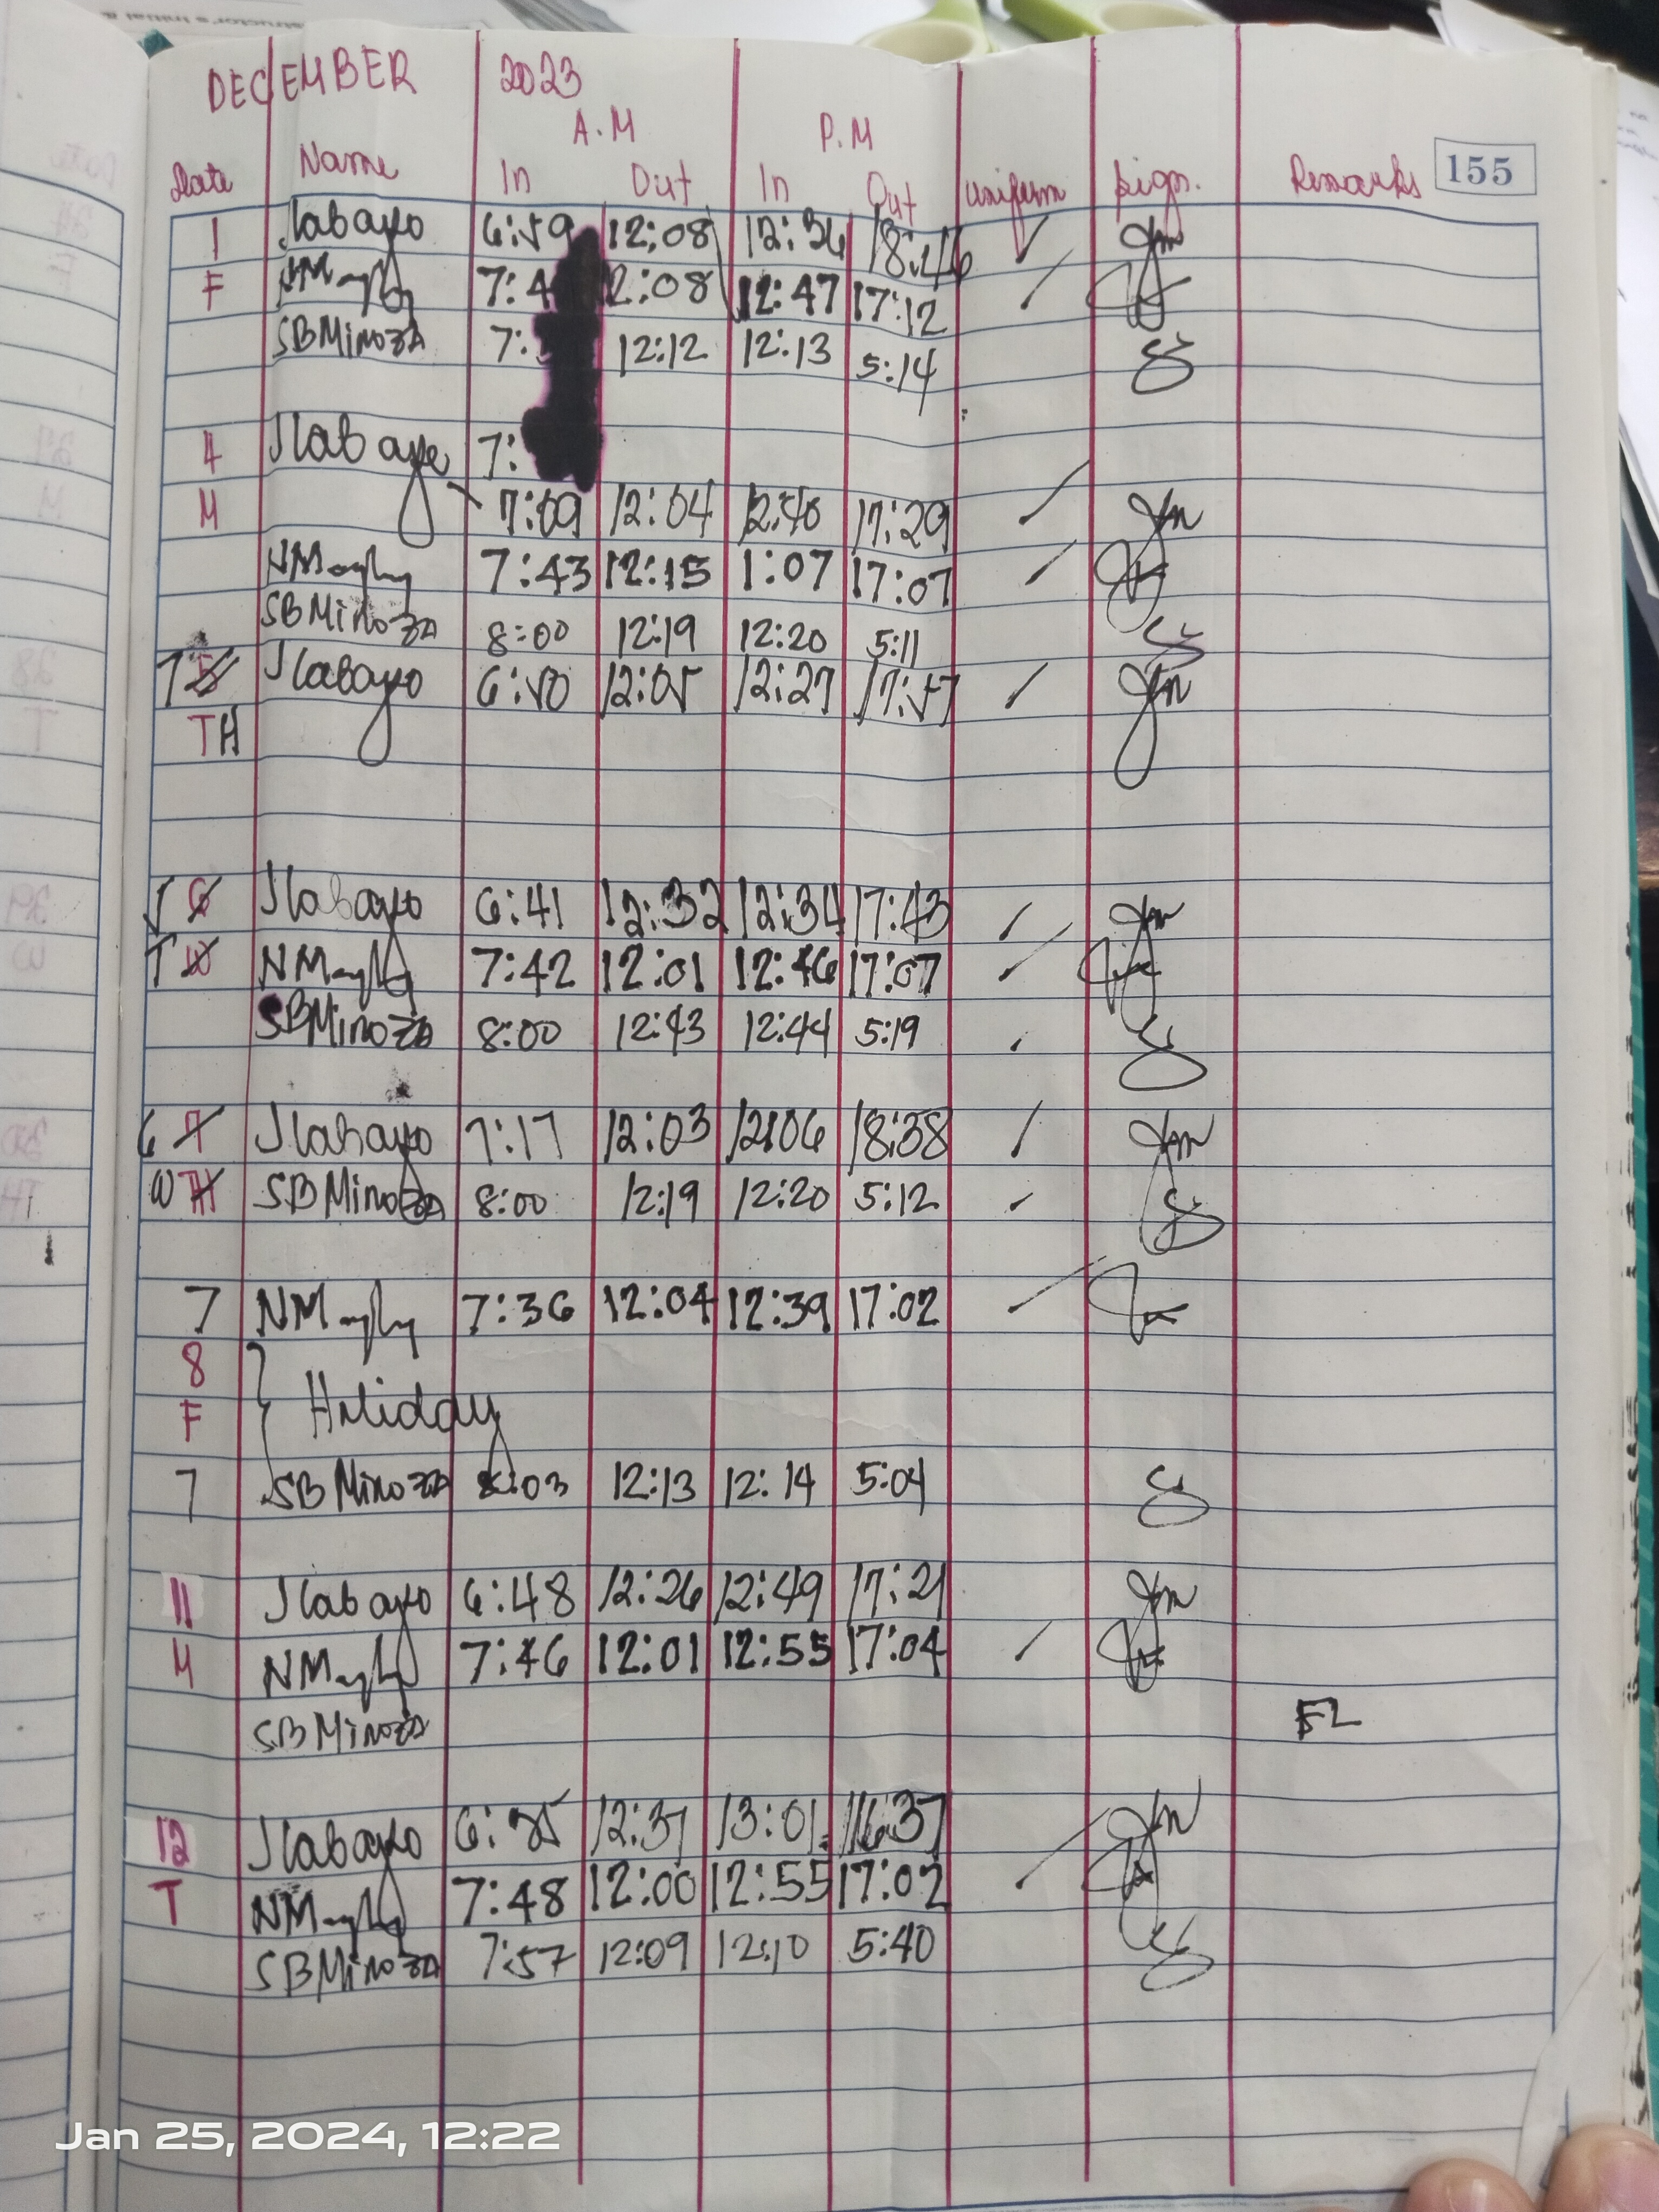 155
DECEMBER 2023
A.M P.M
Date Name In Out In Out Uniform Sign. Remarks
1 Jlabayo 6:59 12:08 12:36 18:46
F 7:4 12:08 12:47 17:12
SBMinoza 7: 12:12 12:13 5:14
4 Jlabayo 7:
M 7:09 12:04 12:40 17:29
7:43 12:15 1:07 17:07
SBMinoza 8:00 12:19 12:20 5:11
7 Jlabayo 6:50 12:05 12:27 17:57
TH
5 Jlabayo 6:41 12:32 12:34 17:43
T 7:42 12:01 12:46 17:07
SBMinoza 8:00 12:43 12:44 5:19
6 Jlabayo 7:17 12:03 12:06 18:38
W SBMinoza 8:00 12:19 12:20 5:12
7 7:36 12:04 12:39 17:02
8
F Holiday
7 SBMinoza 8:03 12:13 12:14 5:04
11 Jlabayo 6:48 12:26 12:49 17:21
M 7:46 12:01 12:55 17:04
SBMinoza FL
12 Jlabayo 12:37 13:01 16:37
T 7:48 12:00 12:55 17:02
SBMinoza 7:57 12:09 12:10 5:40
Jan 25, 2024, 12:22